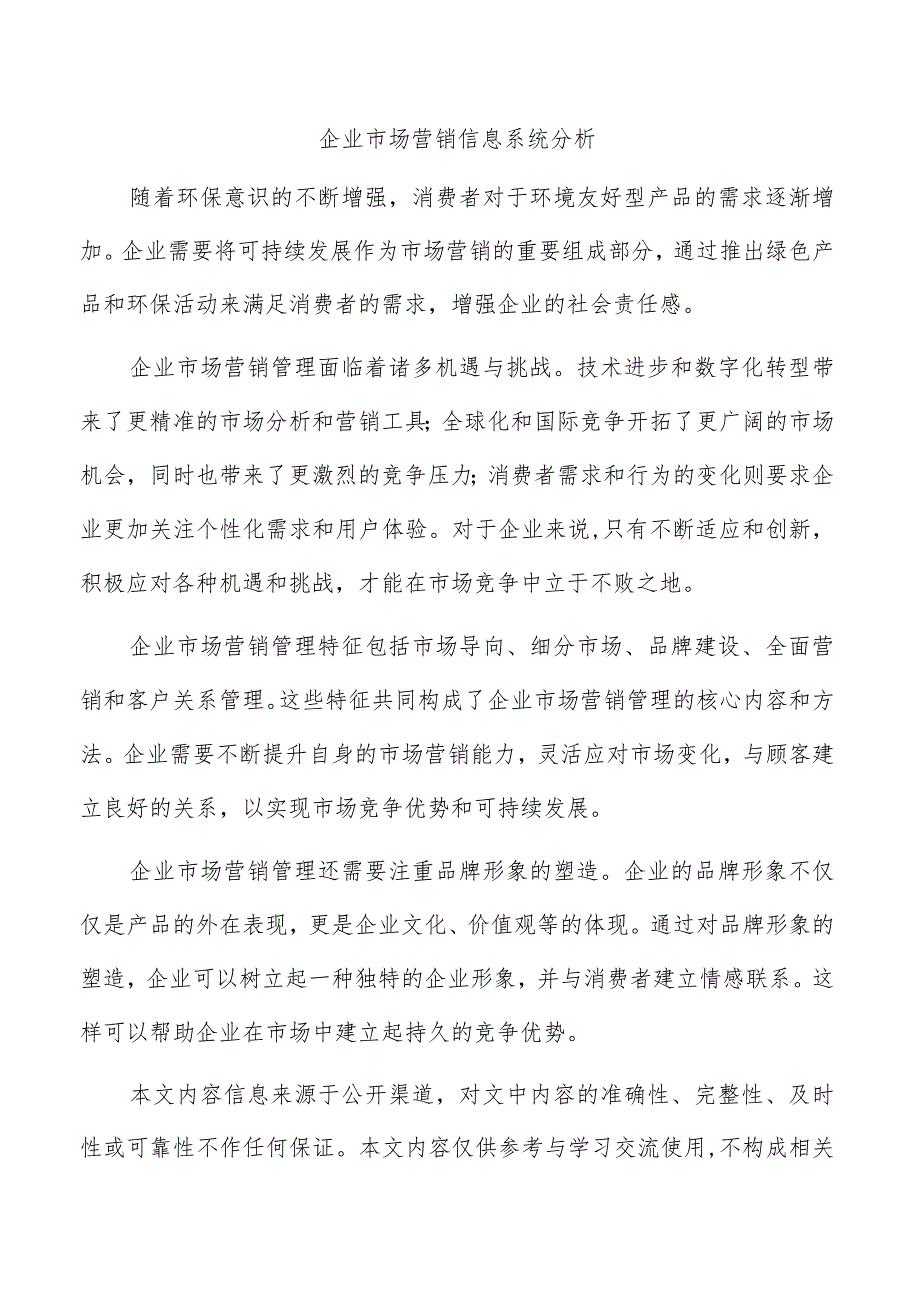 企业市场营销信息系统分析
随着环保意识的不断增强，消费者对于环境友好型产品的需求逐渐增
加。企业需要将可持续发展作为市场营销的重要组成部分，通过推出绿色产
品和环保活动来满足消费者的需求，增强企业的社会责任感。
企业市场营销管理面临着诸多机遇与挑战。技术进步和数字化转型带
来了更精准的市场分析和营销工具；全球化和国际竞争开拓了更广阔的市场
机会，同时也带来了更激烈的竞争压力；消费者需求和行为的变化则要求企
业更加关注个性化需求和用户体验。对于企业来说,只有不断适应和创新，
积极应对各种机遇和挑战，才能在市场竞争中立于不败之地。
企业市场营销管理特征包括市场导向、细分市场、品牌建设、全面营
销和客户关系管理。这些特征共同构成了企业市场营销管理的核心内容和方
法。企业需要不断提升自身的市场营销能力，灵活应对市场变化，与顾客建
立良好的关系，以实现市场竞争优势和可持续发展。
企业市场营销管理还需要注重品牌形象的塑造。企业的品牌形象不仅
仅是产品的外在表现，更是企业文化、价值观等的体现。通过对品牌形象的
塑造，企业可以树立起一种独特的企业形象，并与消费者建立情感联系。这
样可以帮助企业在市场中建立起持久的竞争优势。
本文内容信息来源于公开渠道，对文中内容的准确性、完整性、及时
性或可靠性不作任何保证。本文内容仅供参考与学习交流使用,不构成相关